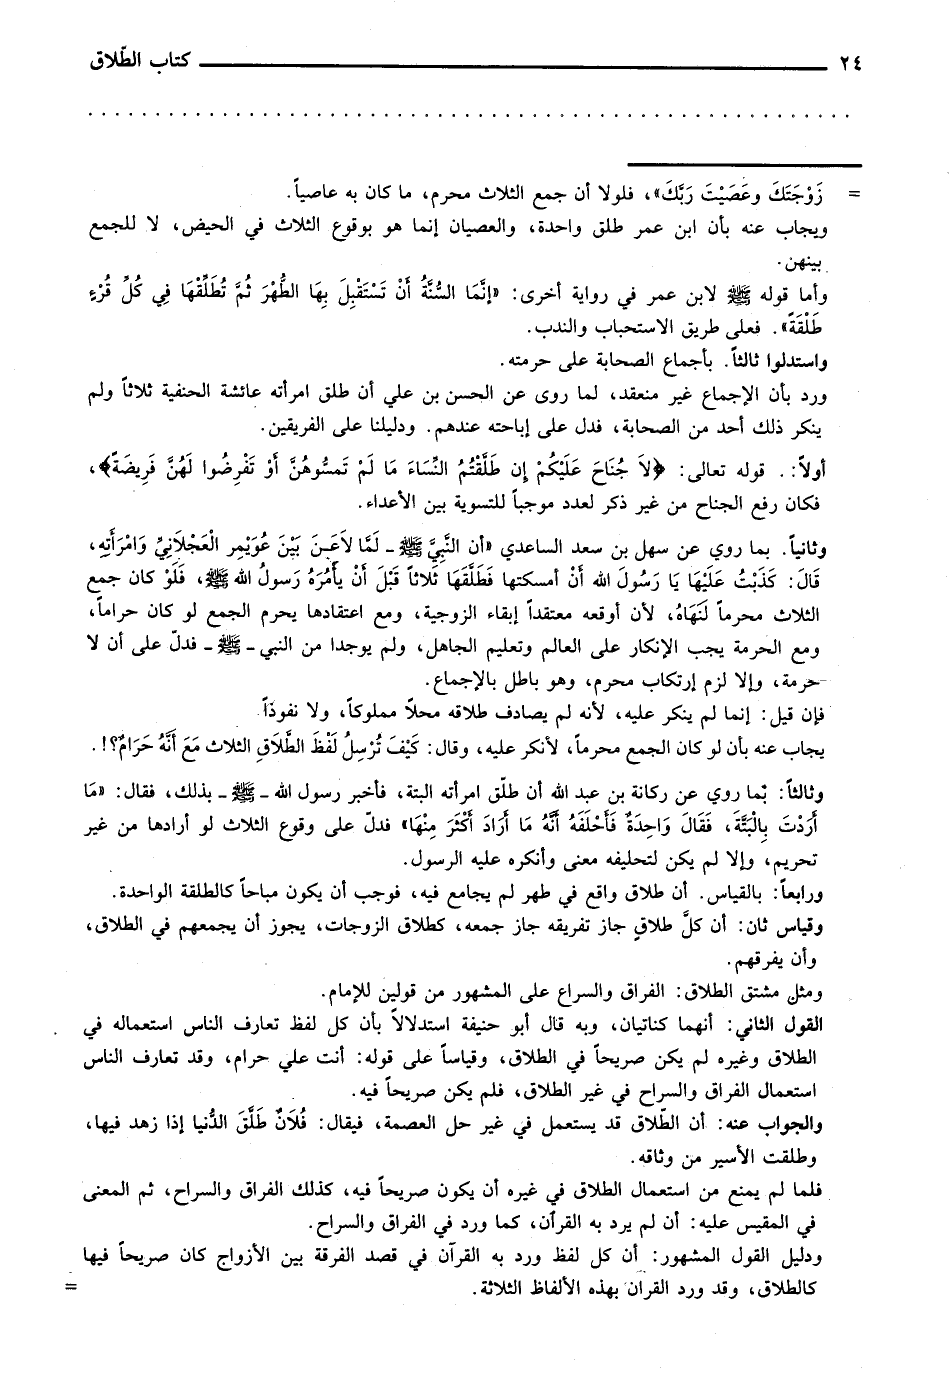 ٢٤ ــــــــــ كتاب الطّلاق
. . . . . . . . . . . . . . . . . . . . . . . . . . . . . . . . . . . . . . . . . . . . . . . .
= زَوْجَتَكَ وعَصَيْتَ رَبَّكَ»، فلولا أن جمع الثلاث محرم، ما كان به عاصياً.
ويجاب عنه بأن ابن عمر طلق واحدة، والعصيان إنما هو بوقوع الثلاث في الحيض، لا للجمع
بينهن.
وأما قوله ﷺ لابن عمر في رواية أخرى: «إنَّمَا السُّنَّةُ أَنْ تَسْتَقْبِلَ بِهَا الطُّهْرَ ثُمَّ تُطَلِّقْهَا فِي كُلِّ قُرْءٍ
طَلْقَةً». فعلى طريق الاستحباب والندب.
واستدلوا ثالثاً. بأجماع الصحابة على حرمته.
ورد بأن الإجماع غير منعقد، لما روى عن الحسن بن علي أن طلق امرأته عائشة الحنفية ثلاثاً ولم
ينكر ذلك أحد من الصحابة، فدل على إباحته عندهم. ودليلنا على الفريقين.
أولاً:. قوله تعالى: ﴿لاَ جُنَاحَ عَلَيْكُمْ إِن طَلَّقْتُمُ النِّسَاءَ مَا لَمْ تَمسُّوهُنَّ أَوْ تَفْرِضُوا لَهُنَّ فَرِيضَةً﴾،
فكان رفع الجناح من غير ذكر لعدد موجباً للتسوية بين الأعداء.
وثانياً. بما روي عن سهل بن سعد الساعدي «أن النَّبِيَّ ﷺ ـ لَمَّا لاَعَـنَ بَيْنَ عُوَيْمِر الْعَجْلاَنِيِّ وَامْرَأَتِهِ،
قَالَ: كَذَبْتُ عَلَيْهَا يَا رَسُولَ الله أَنْ أمسكتها فَطَلَّقَهَا ثَلاثاً قَبْلَ أَنْ يأْمُرَهُ رَسولُ الله ﷺ، فَلَوْ كان جمع
الثلاث محرماً لَنَهَاهُ، لأن أوقعه معتقداً إبقاء الزوجية، ومع اعتقادها يحرم الجمع لو كان حراماً،
ومع الحرمة يجب الإنكار على العالم وتعليم الجاهل، ولم يوجدا من النبي ـ ﷺ ـ فدلّ على أن لا
حرمة، وإلا لزم إرتكاب محرم، وهو باطل بالإجماع.
فإن قيل: إنما لم ينكر عليه، لأنه لم يصادف طلاقه محلاً مملوكاً، ولا نفوذاً
يجاب عنه بأن لو كان الجمع محرماً، لأنكر عليه، وقال: كَيْفَ تُرْسِلُ لَفْظَ الطَّلاَقِ الثلاث مَعَ أَنَّهُ حَرَامٌ؟!.
وثالثاً: بُما روي عن ركانة بن عبد الله أن طلّق امرأته البتة، فأخبر رسول الله ـ ﷺ ـ بذلك، فقال: «مَا
أَرَدْتَ بِالْبَتَّةَ، فَقَالَ وَاحِدَةٌ فَأَحْلَفَهُ أَنَّهُ مَا أَرَادَ أَكْثَرَ مِنْهَا» فدلّ على وقوع الثلاث لو أرادها من غير
تحريم، وإلا لم يكن لتحليفه معنى وأنكره عليه الرسول.
ورابعاً: بالقياس. أن طلاق واقع في طهر لم يجامع فيه، فوجب أن يكون مباحاً كالطلقة الواحدة.
وقياس ثان: أن كلَّ طلاقٍ جاز تفريقه جاز جمعه، كطلاق الزوجات، يجوز أن يجمعهم في الطلاق،
وأن يفرقهم.
ومثل مشتق الطلاق: الفراق والسراع على المشهور من قولين للإمام.
القول الثاني: أنهما كناتيان، وبه قال أبو حنيفة استدلالاً بأن كل لفظ تعارف الناس استعماله في
الطلاق وغيره لم يكن صريحاً في الطلاق، وقياساً على قوله: أنت علي حرام، وقد تعارف الناس
استعمال الفراق والسراح في غير الطلاق، فلم يكن صريحاً فيه.
والجواب عنه: أن الطّلاق قد يستعمل في غير حل العصمة، فيقال: فُلاَنٌ طَلَّقَ الدُّنيا إذا زهد فيها،
وطلقت الأسير من وثاقه.
فلما لم يمنع من استعمال الطلاق في غيره أن يكون صريحاً فيه، كذلك الفراق والسراح، ثم المعنى
في المقيس عليه: أن لم يرد به القرآن، كما ورد في الفراق والسراح.
ودليل القول المشهور: أن كل لفظ ورد به القرآن في قصد الفرقة بين الأزواج كان صريحاً فيها
كالطلاق، وقد ورد القرآن بهذه الألفاظ الثلاثة. =